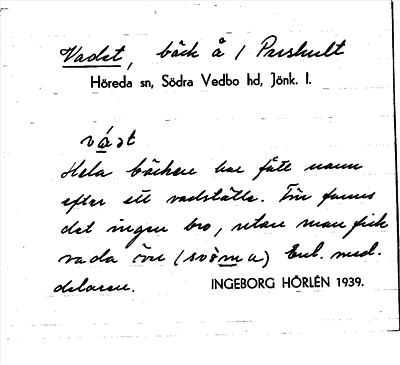 Vadet, bäck å 1 Parshult
Höreda sn, Södra Vedbo hd, Jönk. l.
Hela bäcken har fått namn
efter ett vadställe. Förr fanns
det ingen bro, utan man fick
vada över (svömma) Enl. med-
delaren.
INGEBORG HÖRLÉN 1939.